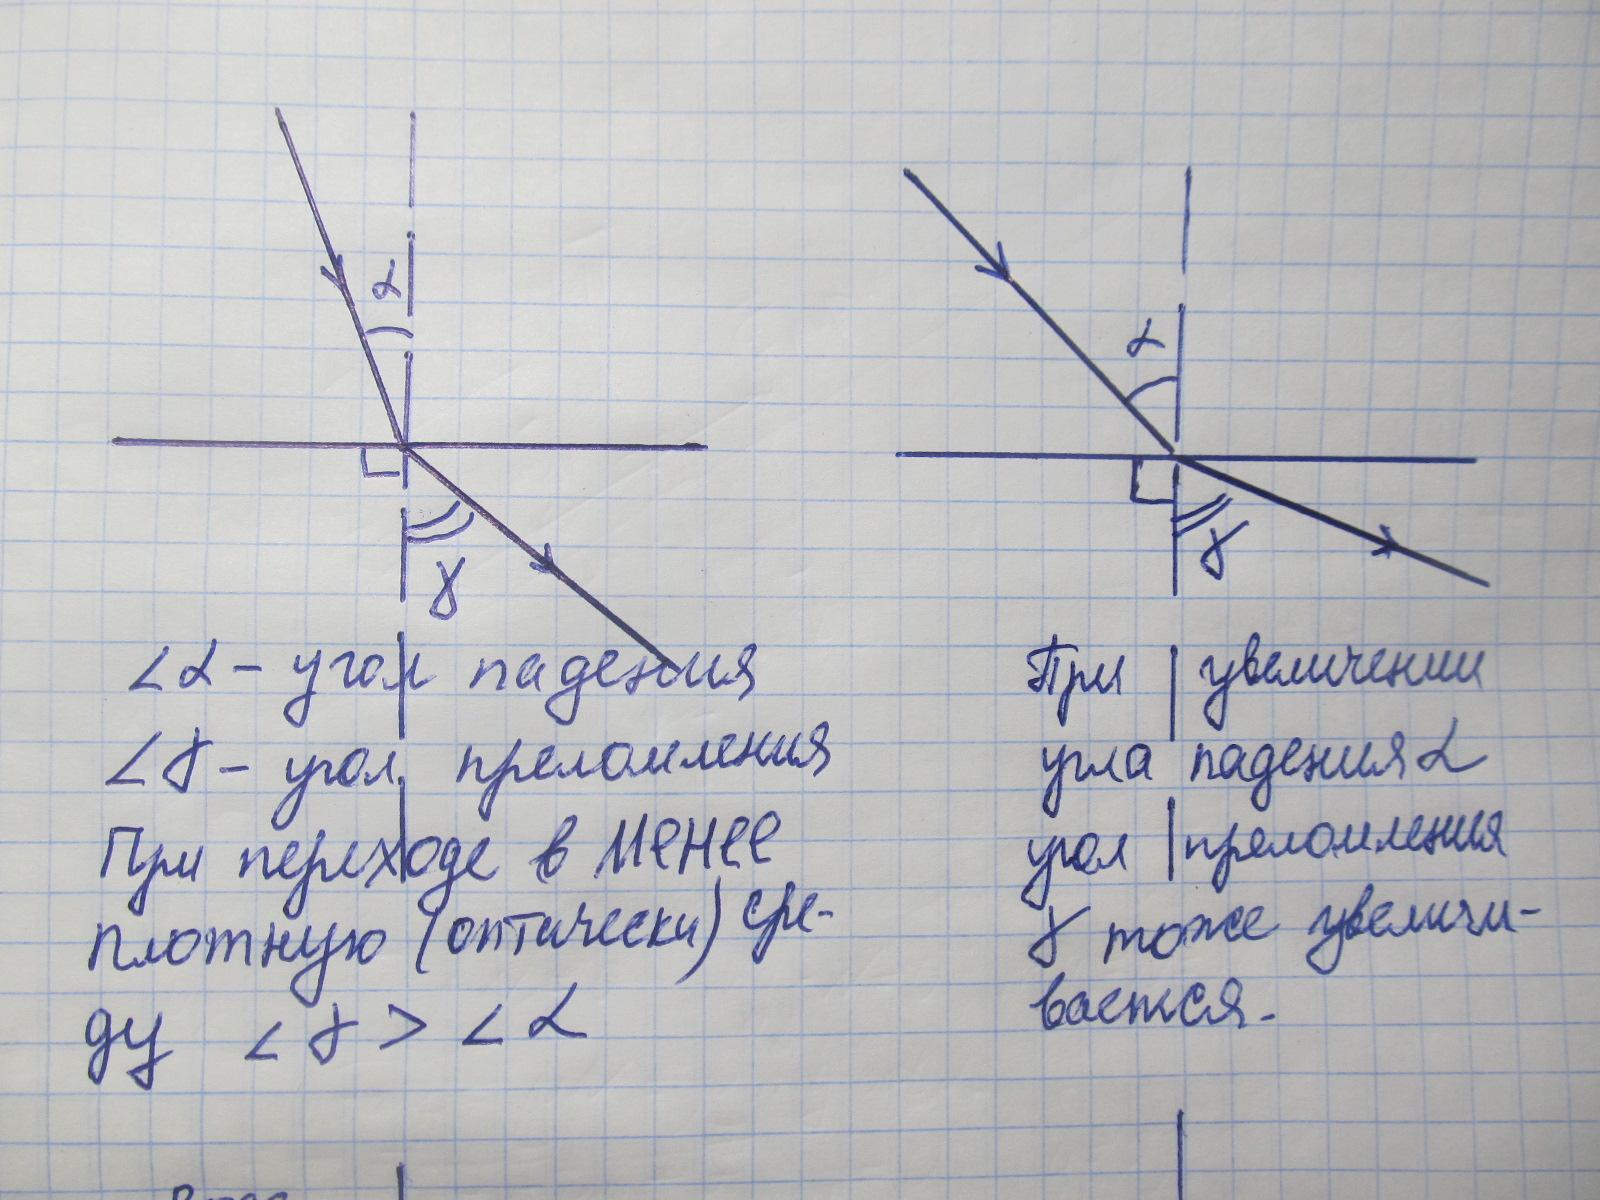 α
γ
∠α - угол падения
∠γ - угол преломления
При переходе в менее
плотную (оптически) сре-
ду ∠γ > ∠α
α
γ
При увеличении
угла падения α
угол преломления
γ тоже увеличи-
вается.